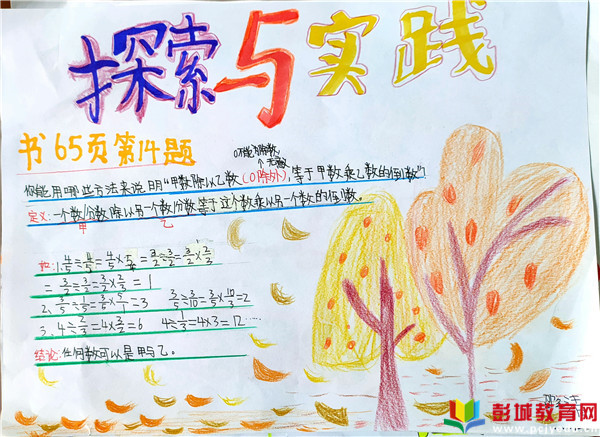 探索与实践
书65页第14题
0不能当除数,
你能用哪些方法来说明“甲数除以乙数(0除外),等于甲数乘乙数的倒数”
定义:一个数/分数除以另一个数/分数等于这个数乘以另一个数的倒数。
甲 乙
1. 4/5÷4/5=4/5×5/4=3/2÷3/2=3/2×2/3
=3/2÷3/2=3/2×2/3=1
2. 3/5÷1/5=3/5×5/1=3 3/5÷3/10=3/5×10/3=2
3. 4÷2/3=4×3/2=6 4÷1/3=4×3=12……
结论:任何数可以是甲与乙。
彭城教育网
www.pcjyw.com